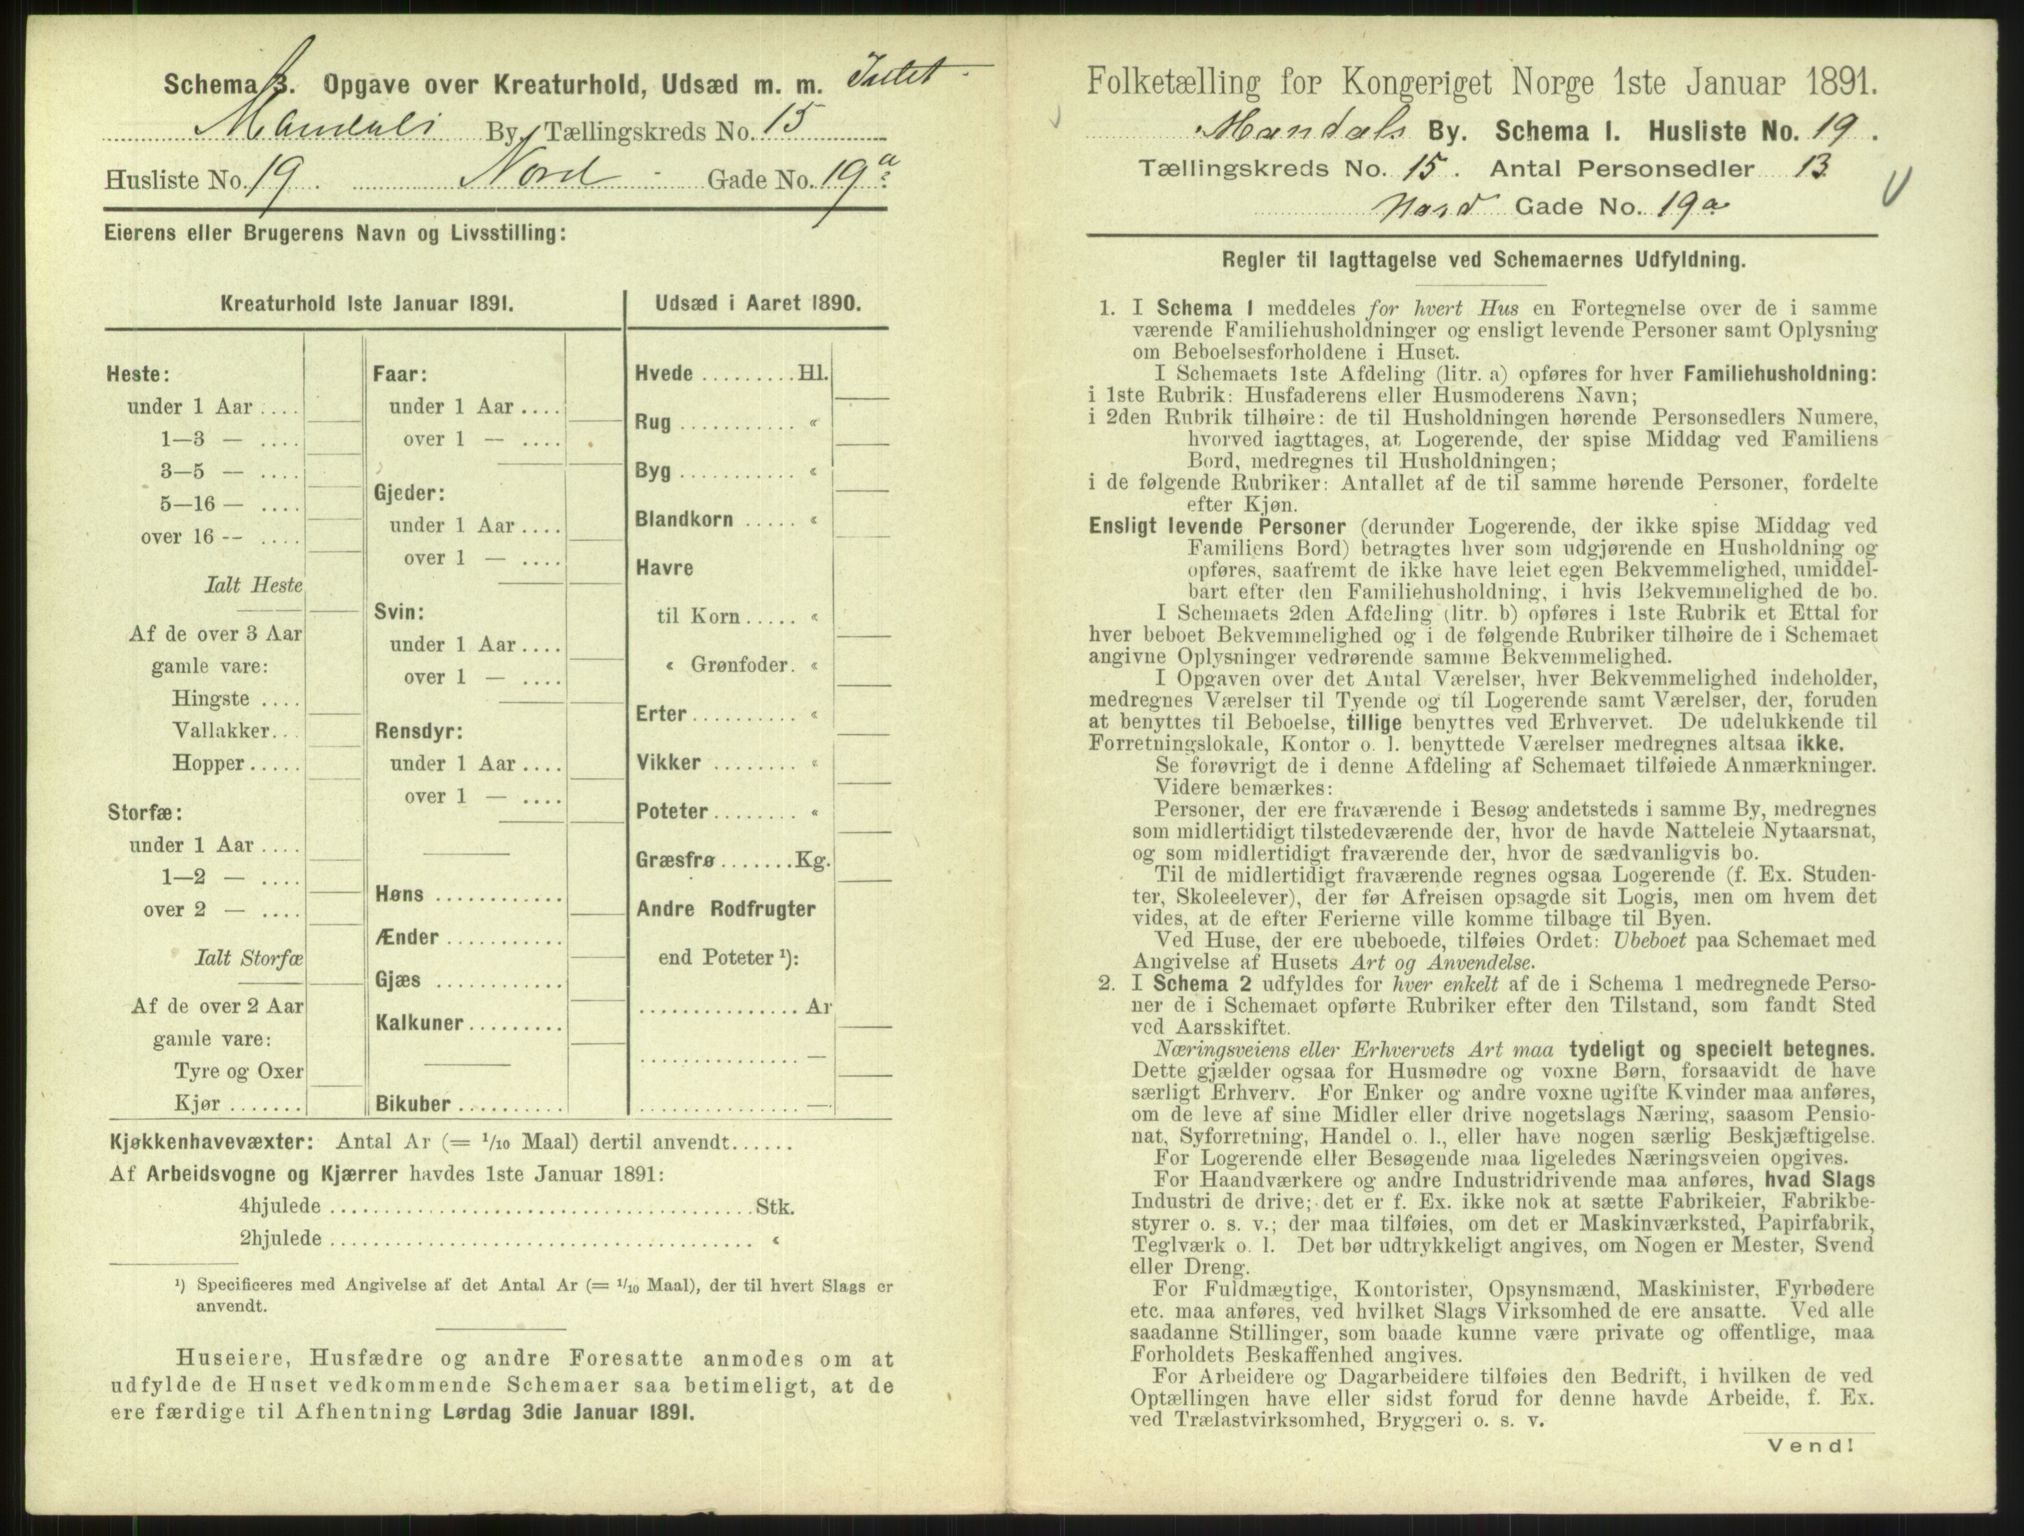 Schema 3. Opgave over Kreaturhold, Udsæd m. m. Intet
Mandals By, Tællingskreds No. 15
Husliste No. 19. Nord Gade No. 19a
Eierens eller Brugerens Navn og Livsstilling:
Kreaturhold 1ste Januar 1891.
Heste:
under 1 Aar ....
1—3 — ....
3—5 — ....
5—16 — ....
over 16 -- ....
Ialt Heste
Af de over 3 Aar
gamle vare:
Hingste ....
Vallakker...
Hopper.....
Storfæ:
under 1 Aar ....
1—2 — ....
over 2 — ....
Ialt Storfæ
Af de over 2 Aar
gamle vare:
Tyre og Oxer
Kjør .......
Faar:
under 1 Aar ....
over 1 — ....
Gjeder:
under 1 Aar ....
over 1 — ....
Svin:
under 1 Aar ....
over 1 — ....
Rensdyr:
under 1 Aar ....
over 1 — ....
Høns ............
Ænder ...........
Gjæs ............
Kalkuner.........
Bikuber..........
Udsæd i Aaret 1890.
Hvede ......... Hl.
Rug ........... «
Byg ........... «
Blandkorn ..... «
Havre
til Korn ..... «
« Grønfoder. «
Erter.......... «
Vikker ........ «
Poteter........ «
Græsfrø ....... Kg.
Andre Rodfrugter
end Poteter ¹):
............... Ar
............... —
............... —
Kjøkkenhavevæxter: Antal Ar (= 1/10 Maal) dertil anvendt......
Af Arbeidsvogne og Kjærrer havdes 1ste Januar 1891:
4hjulede ..................................... Stk.
2hjulede ..................................... «
¹) Specificeres med Angivelse af det Antal Ar (= 1/10 Maal), der til hvert Slags er
anvendt.
Huseiere, Husfædre og andre Foresatte anmodes om at
udfylde de Huset vedkommende Schemaer saa betimeligt, at de
ere færdige til Afhentning Lørdag 3die Januar 1891.
Folketælling for Kongeriget Norge 1ste Januar 1891.
Mandals By. Schema 1. Husliste No. 19.
Tællingskreds No. 15. Antal Personsedler 13
Nord Gade No. 19a
Regler til Iagttagelse ved Schemaernes Udfyldning.
1. I Schema 1 meddeles for hvert Hus en Fortegnelse over de i samme
værende Familiehusholdninger og ensligt levende Personer samt Oplysning
om Beboelsesforholdene i Huset.
I Schemaets 1ste Afdeling (litr. a) opføres for hver Familiehusholdning:
i 1ste Rubrik: Husfaderens eller Husmoderens Navn;
i 2den Rubrik tilhøire: de til Husholdningen hørende Personsedlers Numere,
hvorved iagttages, at Logerende, der spise Middag ved Familiens
Bord, medregnes til Husholdningen;
i de følgende Rubriker: Antallet af de til samme hørende Personer, fordelte
efter Kjøn.
Ensligt levende Personer (derunder Logerende, der ikke spise Middag ved
Familiens Bord) betragtes hver som udgjørende en Husholdning og
opføres, saafremt de ikke have leiet egen Bekvemmelighed, umiddel-
bart efter den Familiehusholdning, i hvis Bekvemmelighed de bo.
I Schemaets 2den Afdeling (litr. b) opføres i 1ste Rubrik et Ettal for
hver beboet Bekvemmelighed og i de følgende Rubriker tilhøire de i Schemaet
angivne Oplysninger vedrørende samme Bekvemmelighed.
I Opgaven over det Antal Værelser, hver Bekvemmelighed indeholder,
medregnes Værelser til Tyende og til Logerende samt Værelser, der, foruden
at benyttes til Beboelse, tillige benyttes ved Erhvervet. De udelukkende til
Forretningslokale, Kontor o. l. benyttede Værelser medregnes altsaa ikke.
Se forøvrigt de i denne Afdeling af Schemaet tilføiede Anmærkninger.
Videre bemærkes:
Personer, der ere fraværende i Besøg andetsteds i samme By, medregnes
som midlertidigt tilstedeværende der, hvor de havde Natteleie Nytaarsnat,
og som midlertidigt fraværende der, hvor de sædvanligvis bo.
Til de midlertidigt fraværende regnes ogsaa Logerende (f. Ex. Studen-
ter, Skoleelever), der før Afreisen opsagde sit Logis, men om hvem det
vides, at de efter Ferierne ville komme tilbage til Byen.
Ved Huse, der ere ubeboede, tilføies Ordet: Ubeboet paa Schemaet med
Angivelse af Husets Art og Anvendelse.
2. I Schema 2 udfyldes for hver enkelt af de i Schema 1 medregnede Perso-
ner de i Schemaet opførte Rubriker efter den Tilstand, som fandt Sted
ved Aarsskiftet.
Næringsveiens eller Erhvervets Art maa tydeligt og specielt betegnes.
Dette gjælder ogsaa for Husmødre og voxne Børn, forsaavidt de have
særligt Erhverv. For Enker og andre voxne ugifte Kvinder maa anføres,
om de leve af sine Midler eller drive nogetslags Næring, saasom Pensio-
nat, Syforretning, Handel o. l., eller have nogen særlig Beskjæftigelse.
For Logerende eller Besøgende maa ligeledes Næringsveien opgives.
For Haandværkere og andre Industridrivende maa anføres, hvad Slags
Industri de drive; det er f. Ex. ikke nok at sætte Fabrikeier, Fabrikbe-
styrer o. s. v.; der maa tilføies, om det er Maskinværksted, Papirfabrik,
Teglværk o. l. Det bør udtrykkeligt angives, om Nogen er Mester, Svend
eller Dreng.
For Fuldmægtige, Kontorister, Opsynsmænd, Maskinister, Fyrbødere
etc. maa anføres, ved hvilket Slags Virksomhed de ere ansatte. Ved alle
saadanne Stillinger, som baade kunne være private og offentlige, maa
Forholdets Beskaffenhed angives.
For Arbeidere og Dagarbeidere tilføies den Bedrift, i hvilken de ved
Optællingen have eller sidst forud for denne havde Arbeide, f. Ex.
ved Trælastvirksomhed, Bryggeri o. s. v.
Vend!